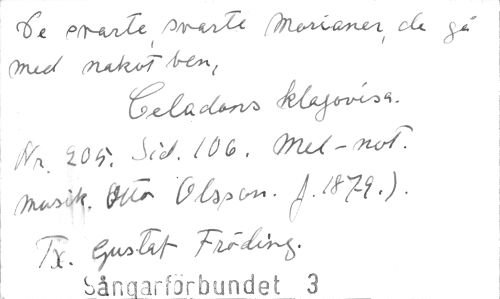 De svarte, svarte Morianer, de gå
med nakot ben,
Celadons klagovisa.
Nr. 205. Sid. 106. Mel-not.
musik. Otto Olsson. f. 1879.).
Tx. Gustaf Fröding.
Sångarförbundet 3